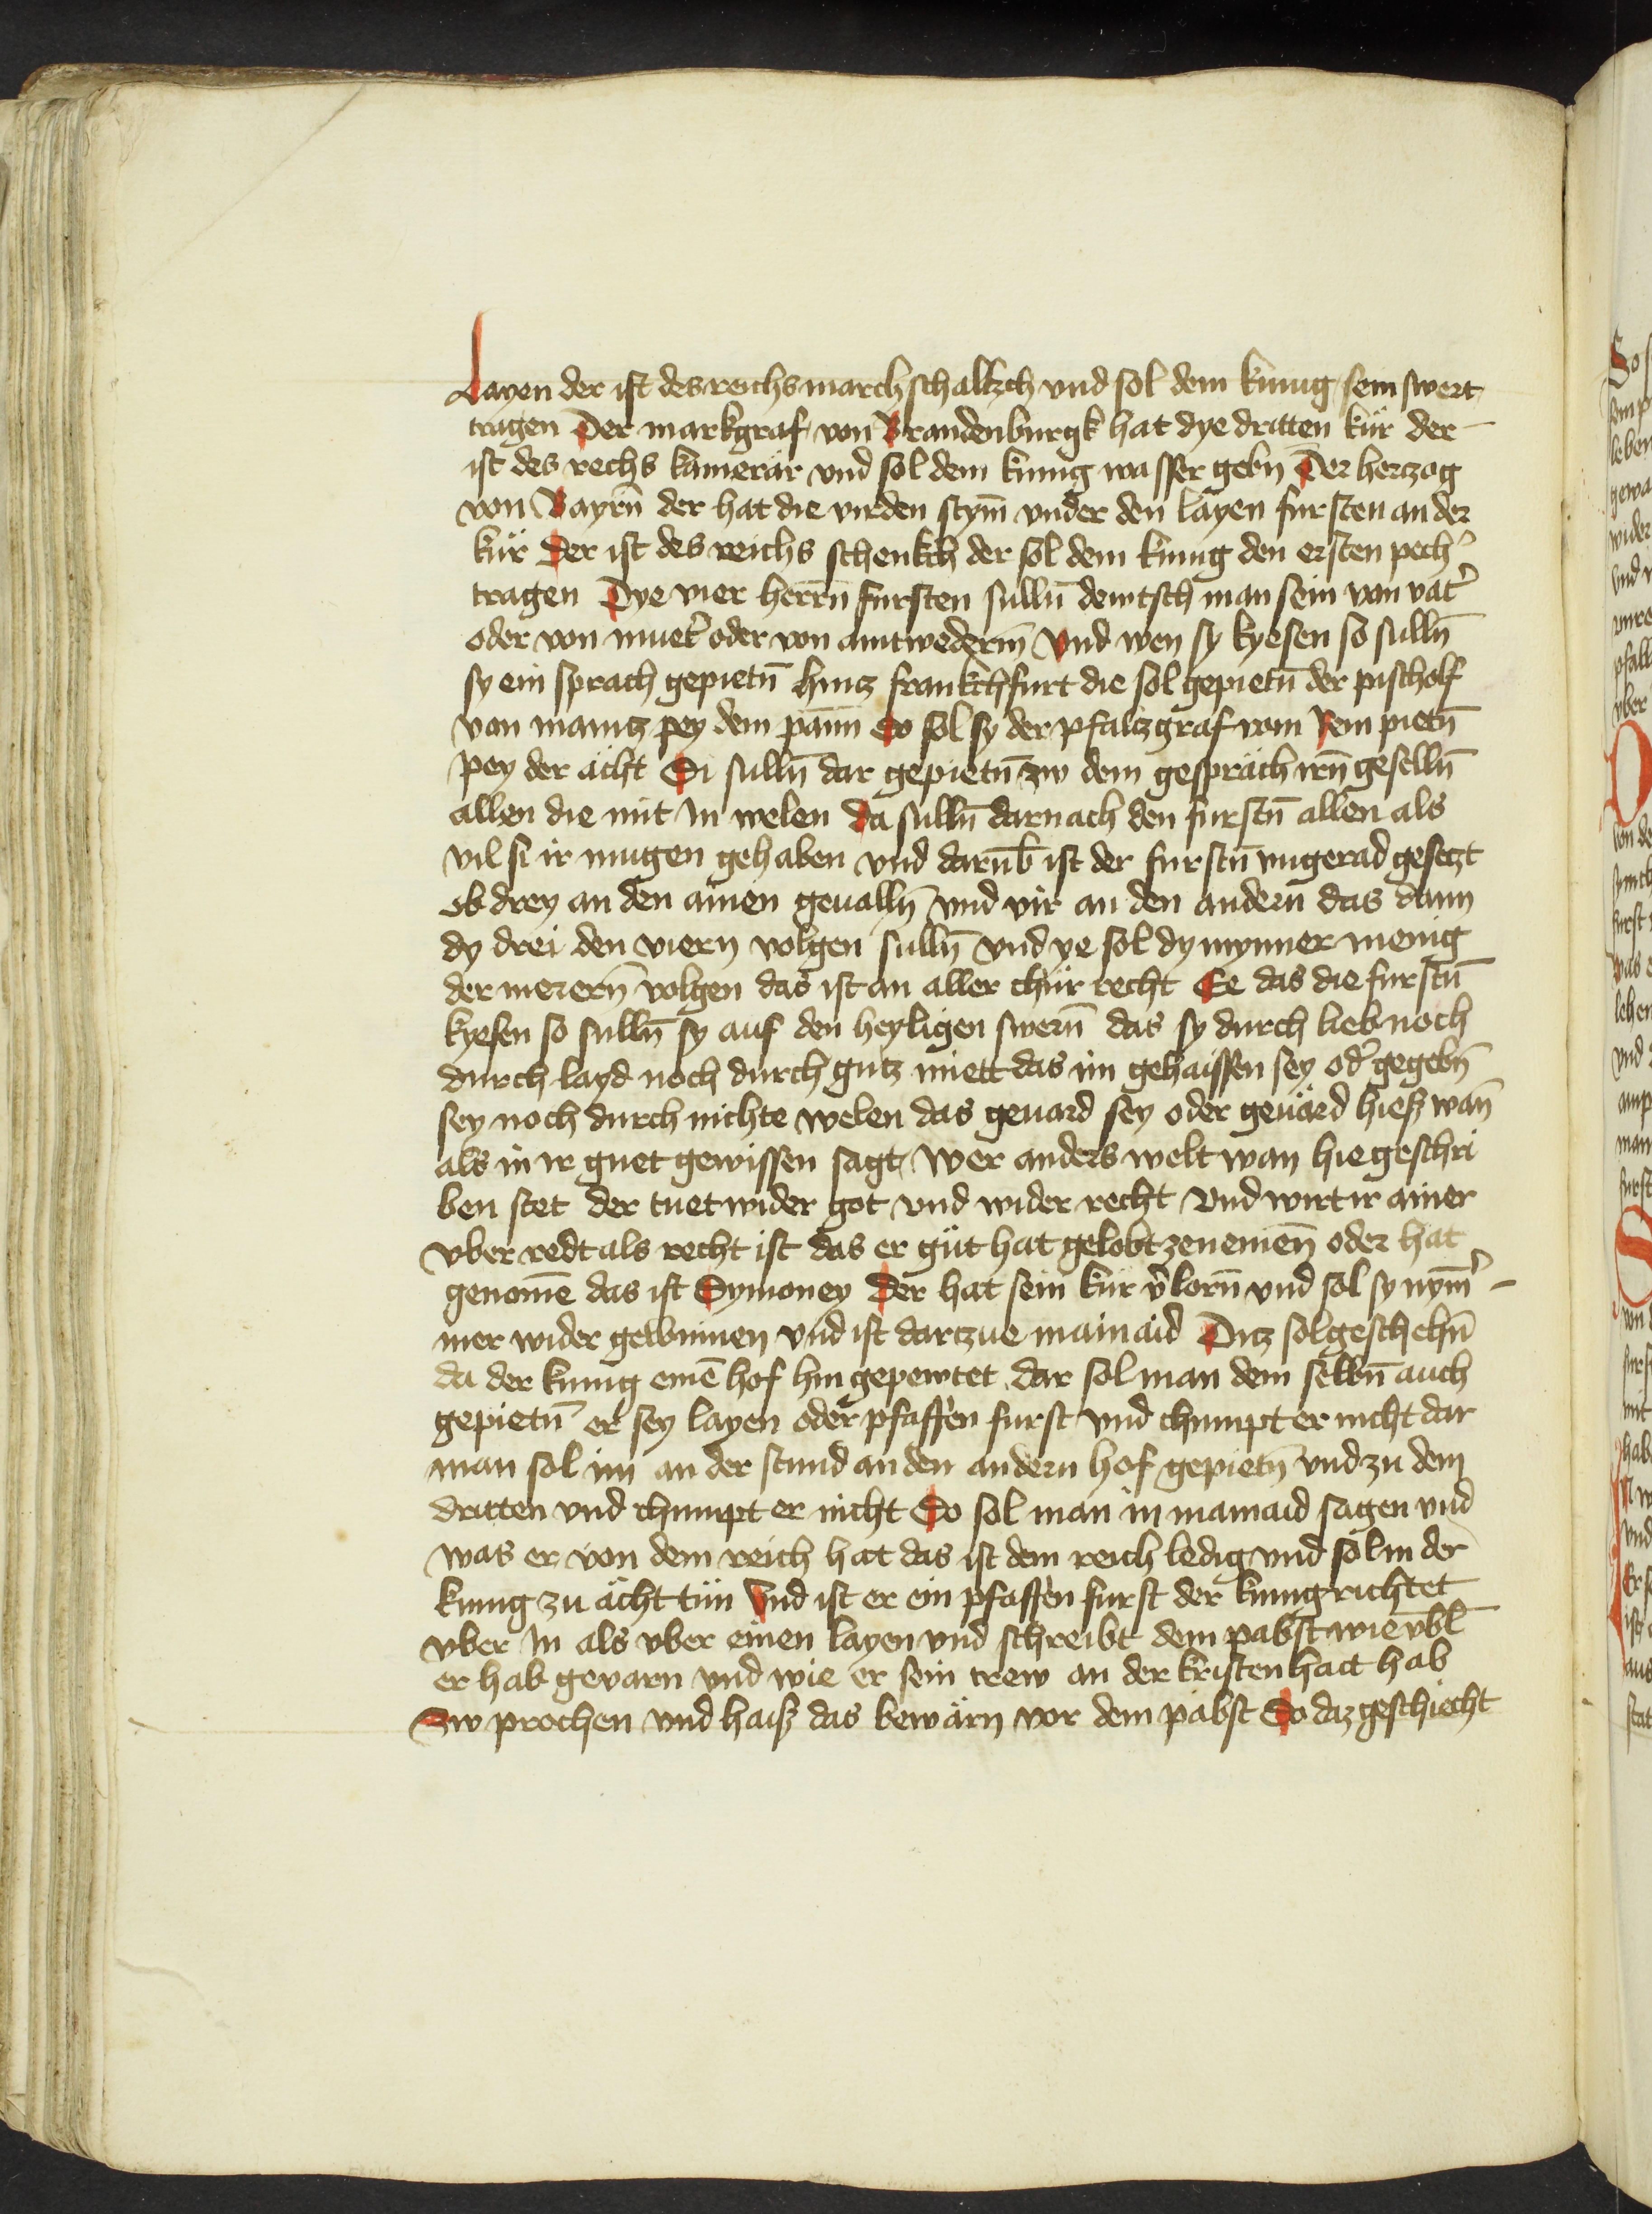 Layen der ist des reichs marchschaltzch vnd sol dem kunig sein swert
tragen Der markgraf von Brandenburgk hat dye dritten kür der
ist des rechs kamerär vnd sol dem kunig wasser gebn Der hertzog
von Bayrn̄ der hat die virden stym̄ vnder den layen fursten an der
kür Der ist des reichs schenkch der sol dem kunig den ersten pech᾽
tragen Dye vier herrn̄ fursten sulln̄ dewtsch man sein von vat᾽
oder von muet᾽ oder von antwederm̄ Vnd wen sy kyesen so sulln̄
sy ein sprach gepietn̄ hintz frankchfurt die sol gepietn̄ der pischolf
von maintz pey dem pann̄ So sol sy der pfaltzgraf vom Rein pietn̄
pey der ächt Si sulln̄ dar gepietn̄ zw dem gespräch irn̄ geselln̄
allen die mit In welen Da sulln̄ darnach den furstn̄ allen als
vil si ir mugen gehaben vnd darūb ist der furstn̄ vngerad gesetzt
ob drey an den ainen geualln̄ vnd vir an den andern das dann
dy drei den viern volgen sulln̄ vnd ye sol dy mynner menig
der merern̄ volgen das ist an aller chür recht Ee das die furstn̄
kyesen so sulln̄ sy auf den heyligen swern̄ das sy durch lieb noch
durch layd noch durch gutz miett das im gehaissen sey od᾽ gegebn̄
sey noch durch nichte welen das geuard sey oder geuärd hiesz wan̄
als in ir guet gewissen sagt Wer anders welt wan hie geschri
ben stet der tuet wider got vnd wider recht Vnd wirt ir ainer
vber redt als recht ist das er güt hat gelobt ze nemen̄ oder hat
genomē das ist Symoney Der hat sein kür v᾽lorn̄ vnd sol sy nym̄᾽
mer wider gewinnen vnd ist dartzue mainaid Ditz sol geschehn̄
da der kunig einē hof hin gepewtet dar sol man dem selbn̄ auch
gepietn̄ er sey layen oder pfaffen furst vnd chumpt er nicht dar
man sol im an der stund an den andern hof gepietn̄ vnd zu dem
dritten vnd chumpt er nicht So sol man in mainaid sagen vnd
was er von dem reich hat das ist dem reich ledig vnd sol in der
kunig zu ächt tün Vnd ist er ein pfaffen furst der kunig richtet
vber In als vber einen layen vnd schreibt dem pabst wie v̄bl
er hab gevarn vnd wie er sein trew an der kristenhait hab
Zw prochen vnd haisz das bewärn vor dem pabst So daz geschiecht